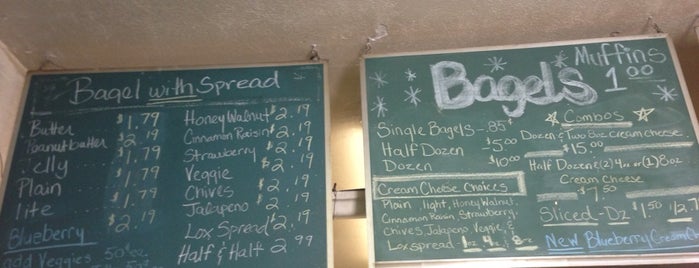 Bagel with Spread
Butter $1.79
Peanutbutter $2.19
elly $1.79
Plain $1.79
lite $1.79
Blueberry $2.19
add Veggies 50¢
Honey Walnut $2.19
Cinnamon Raisin $2.19
Strawberry $2.19
Veggie $2.19
Chives $2.19
Jalapeno $2.19
Lox Spread $2.19
Half & Half $2.99
Bagels
Muffins
1.00
Single Bagels - .85¢
Half Dozen $5.00
Dozen $10.00
Cream Cheese Choices
Plain, light, Honey Walnut,
Cinnamon Raisin, Strawberry,
Chives, Jalapeno, Veggie, &
Lox spread -
Combos
Dozen & Two 8oz cream cheese
$15.00
Half Dozen & (2) 4oz or (1) 8oz
Cream Cheese
$7.50
Sliced - Dz $1.50
New Blueberry Cream Ch